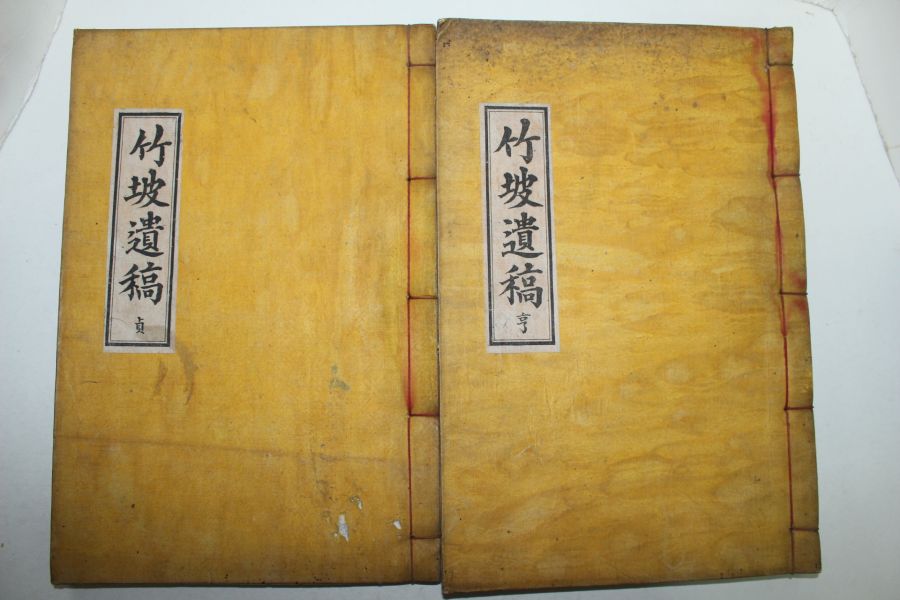 竹坡遺稿
亨
竹坡遺稿
貞